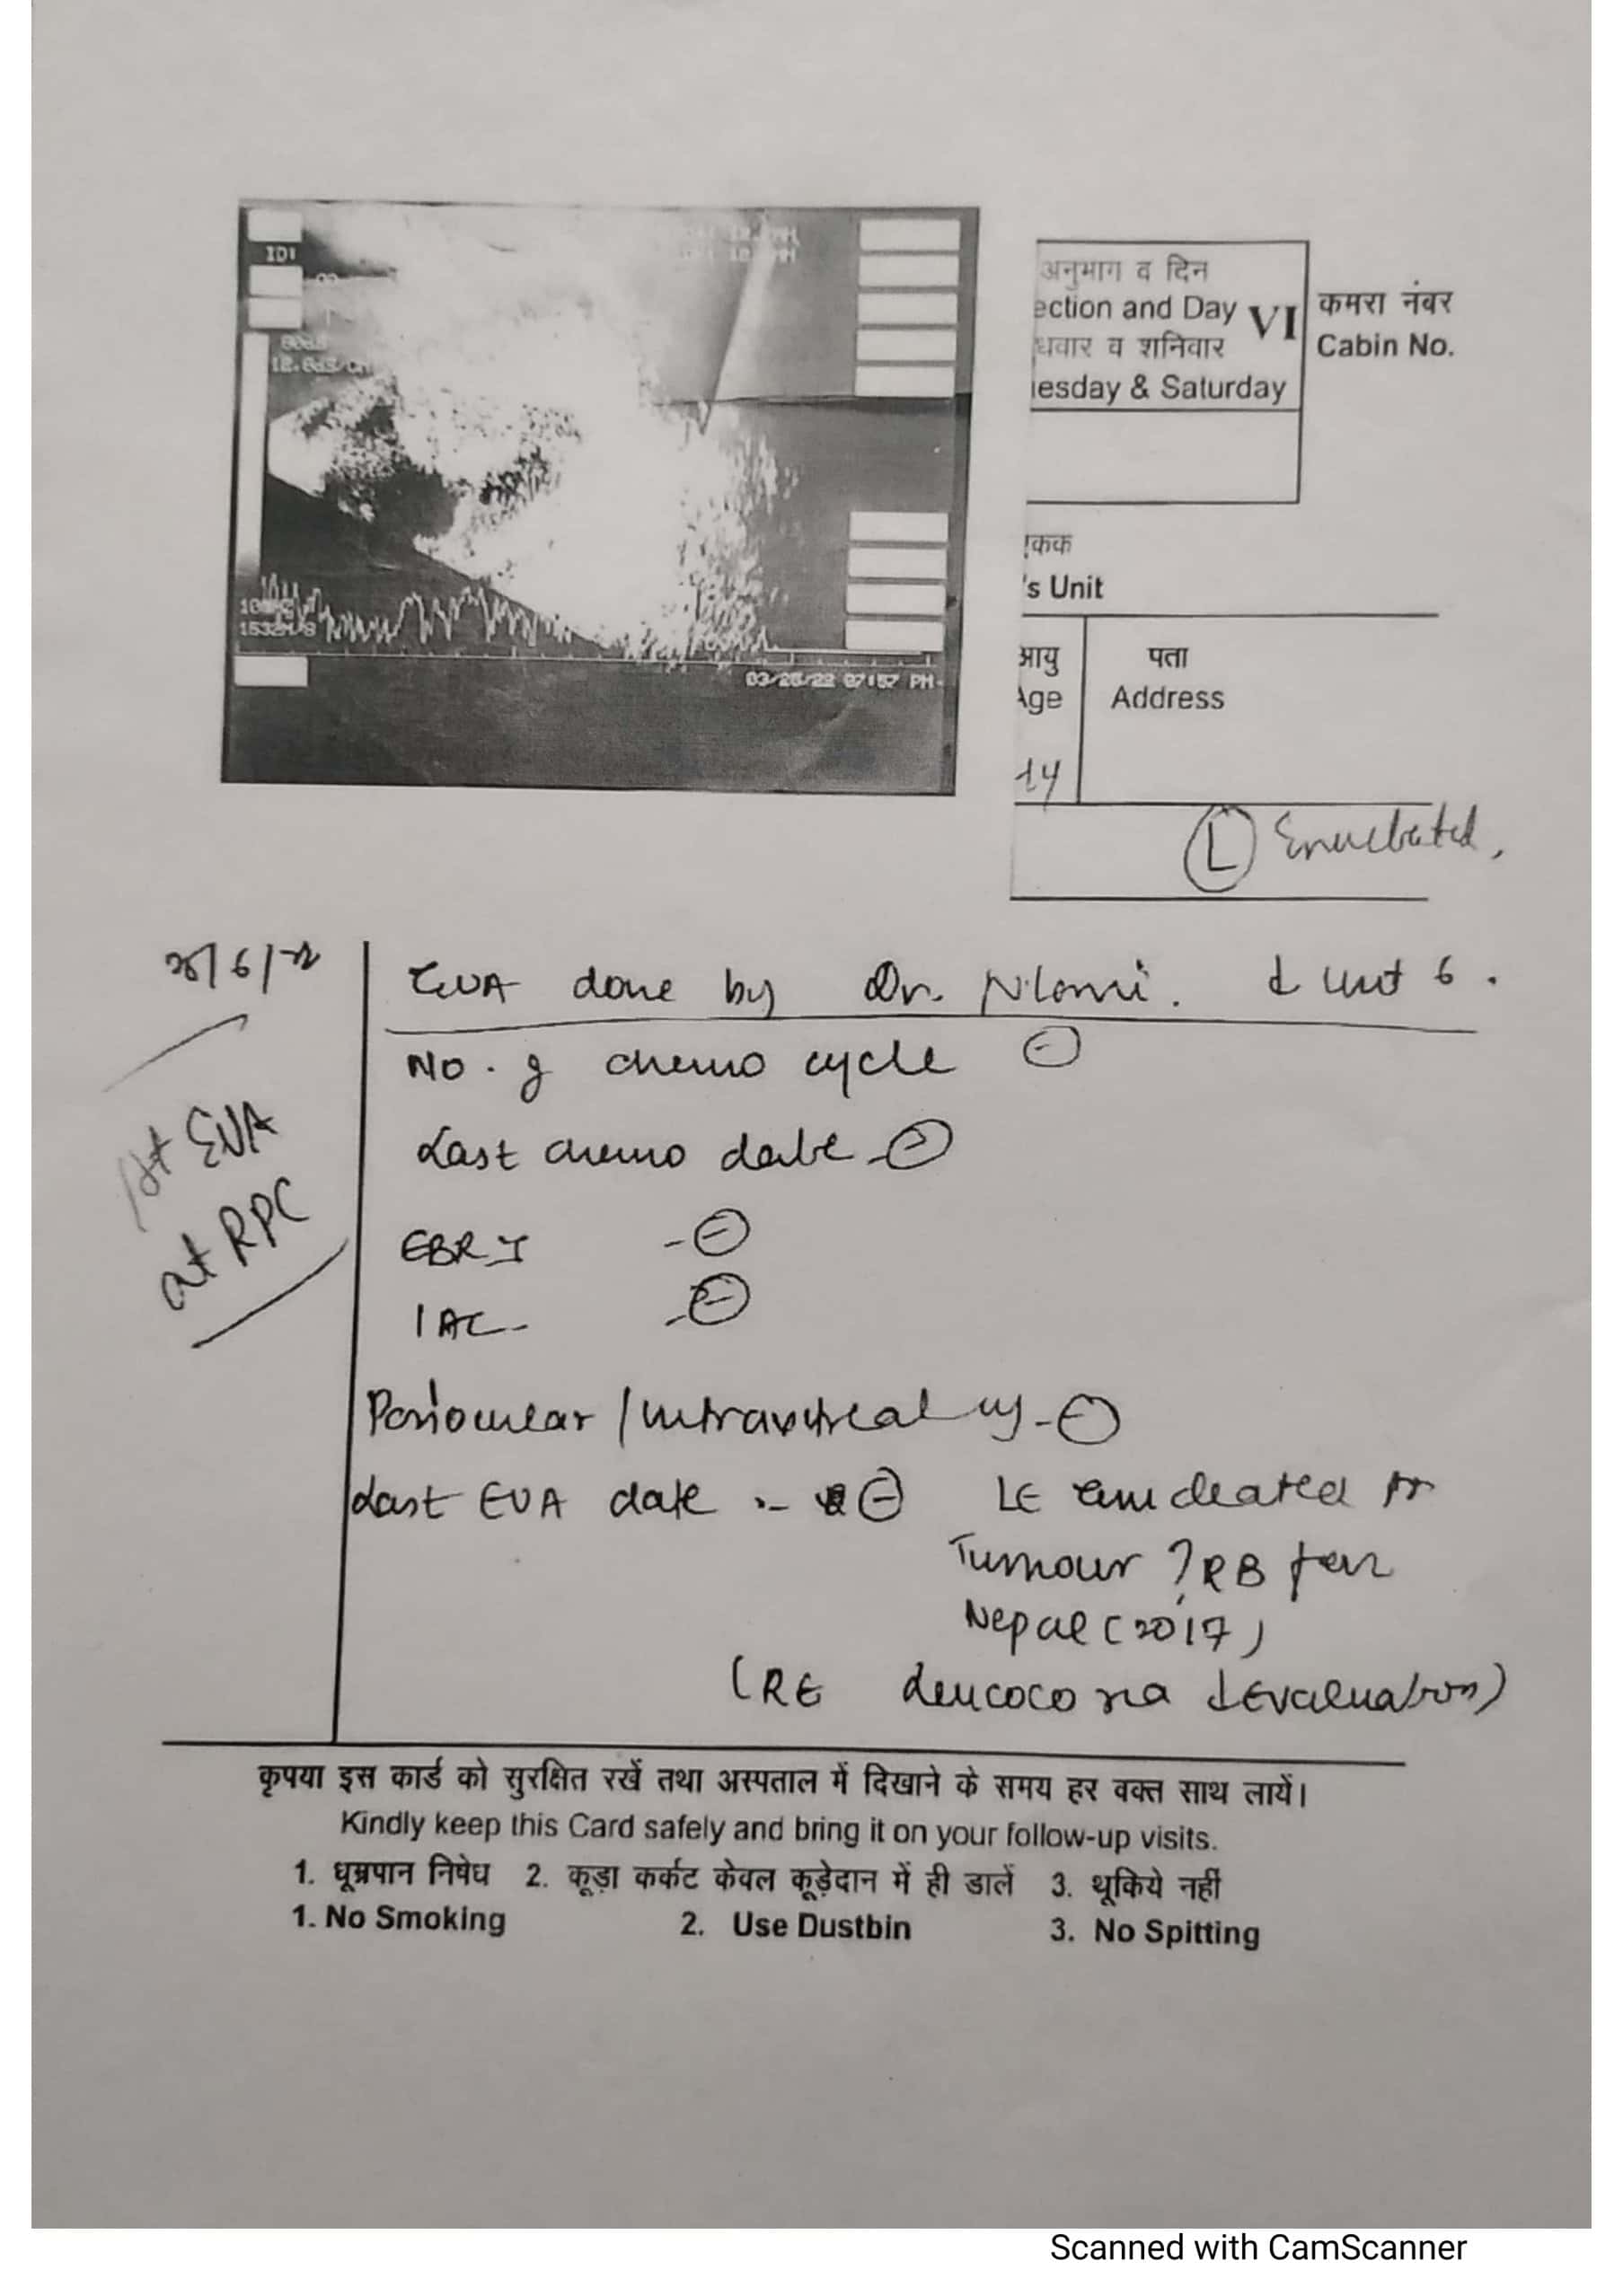 ID:
80dB
10MHz
1532M/S
03/26/22 07:57 PM
अनुभाग व दिन
ection and Day VI
धवार व शनिवार
nesday & Saturday
कमरा नंबर
Cabin No.
एकक
's Unit
आयु
Age
पता
Address
14
(L) Enucleated,
EUA done by Dr. Nilomi. Unit 6.
No. of chemo cycle ⊖
Last chemo date - ⊖
EBRT - ⊖
IAC - ⊖
1st EUA
at RPC
Periocular / intravitreal inj - ⊖
Last EUA date :- ⊖ LE enucleated
Tumour ? RB
Nepal (2017)
(RE Leucocoria Evaluation)
कृपया इस कार्ड को सुरक्षित रखें तथा अस्पताल में दिखाने के समय हर वक्त साथ लायें।
Kindly keep this Card safely and bring it on your follow-up visits.
1. धूम्रपान निषेध 2. कूड़ा कर्कट केवल कूड़ेदान में ही डालें 3. थूकिये नहीं
1. No Smoking 2. Use Dustbin 3. No Spitting
Scanned with CamScanner